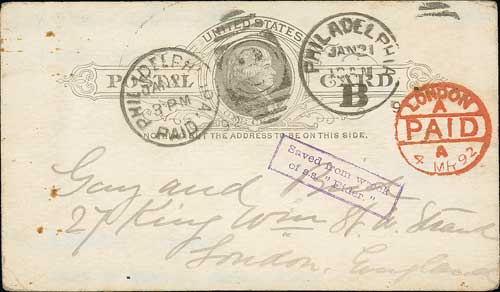 UNITED STATES
POSTAL CARD
NOTHING BUT THE ADDRESS TO BE ON THIS SIDE.
PHILADELPHIA, PA.
JAN
PM
PAID
PHILADELPHIA
JAN 21
B
LONDON
A
PAID
A
4 MR 92
Saved from wreck
of s.s. "Elder."
Gay and
27 King Wm St. W. Strand
London, England